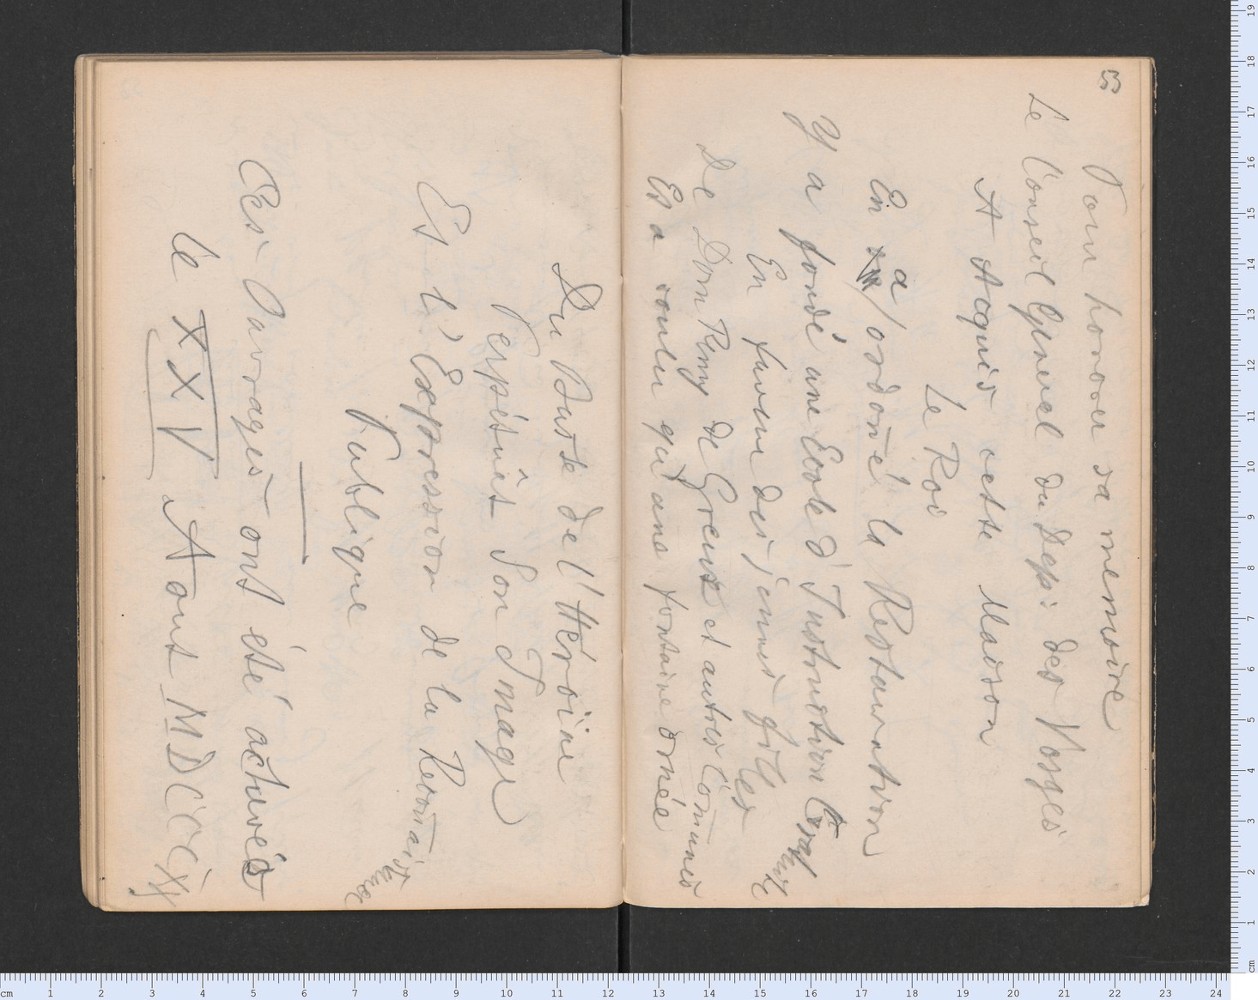 55
Pour honorer sa memoire
Le Conseil General du Dep: des Vosges
A Acquis cette Maison
Le Roi
En a ordoñé la Restauration
Y a fondé une Ecole d'Instruction
En faveur des jeunes filles
De Dom Remy de Greux et autres Com̃unes
Et a voulu qu'une fontaine ornée
Du Buste de l'Héroïne
Perpétuât Son Image
Et l'Expression de la Reconnaissance
Publique
Ces Ouvrages ont été achevés
le XXV Aout MDCCCXX